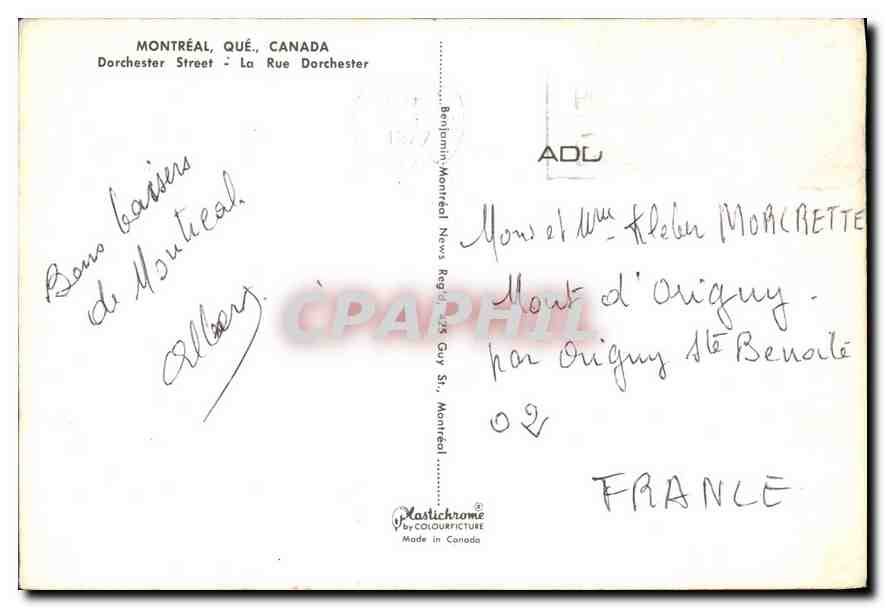 MONTRÉAL, QUÉ., CANADA
Dorchester Street - La Rue Dorchester
Bons baisers
de Montreal.
Albert.
Benjamin-Montréal News Reg'd, 425 Guy St., Montréal
ADD
Mons et Mme Kleber MORCRETTE
Mont d'Origny.
par Origny Ste Benoite
02
FRANCE
CPAPHIL
Plastichrome®
by COLOURPICTURE
Made in Canada